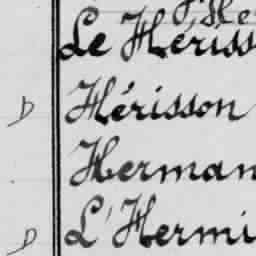 Le Hériss
D Hérisson
Herman
D L'Hermi